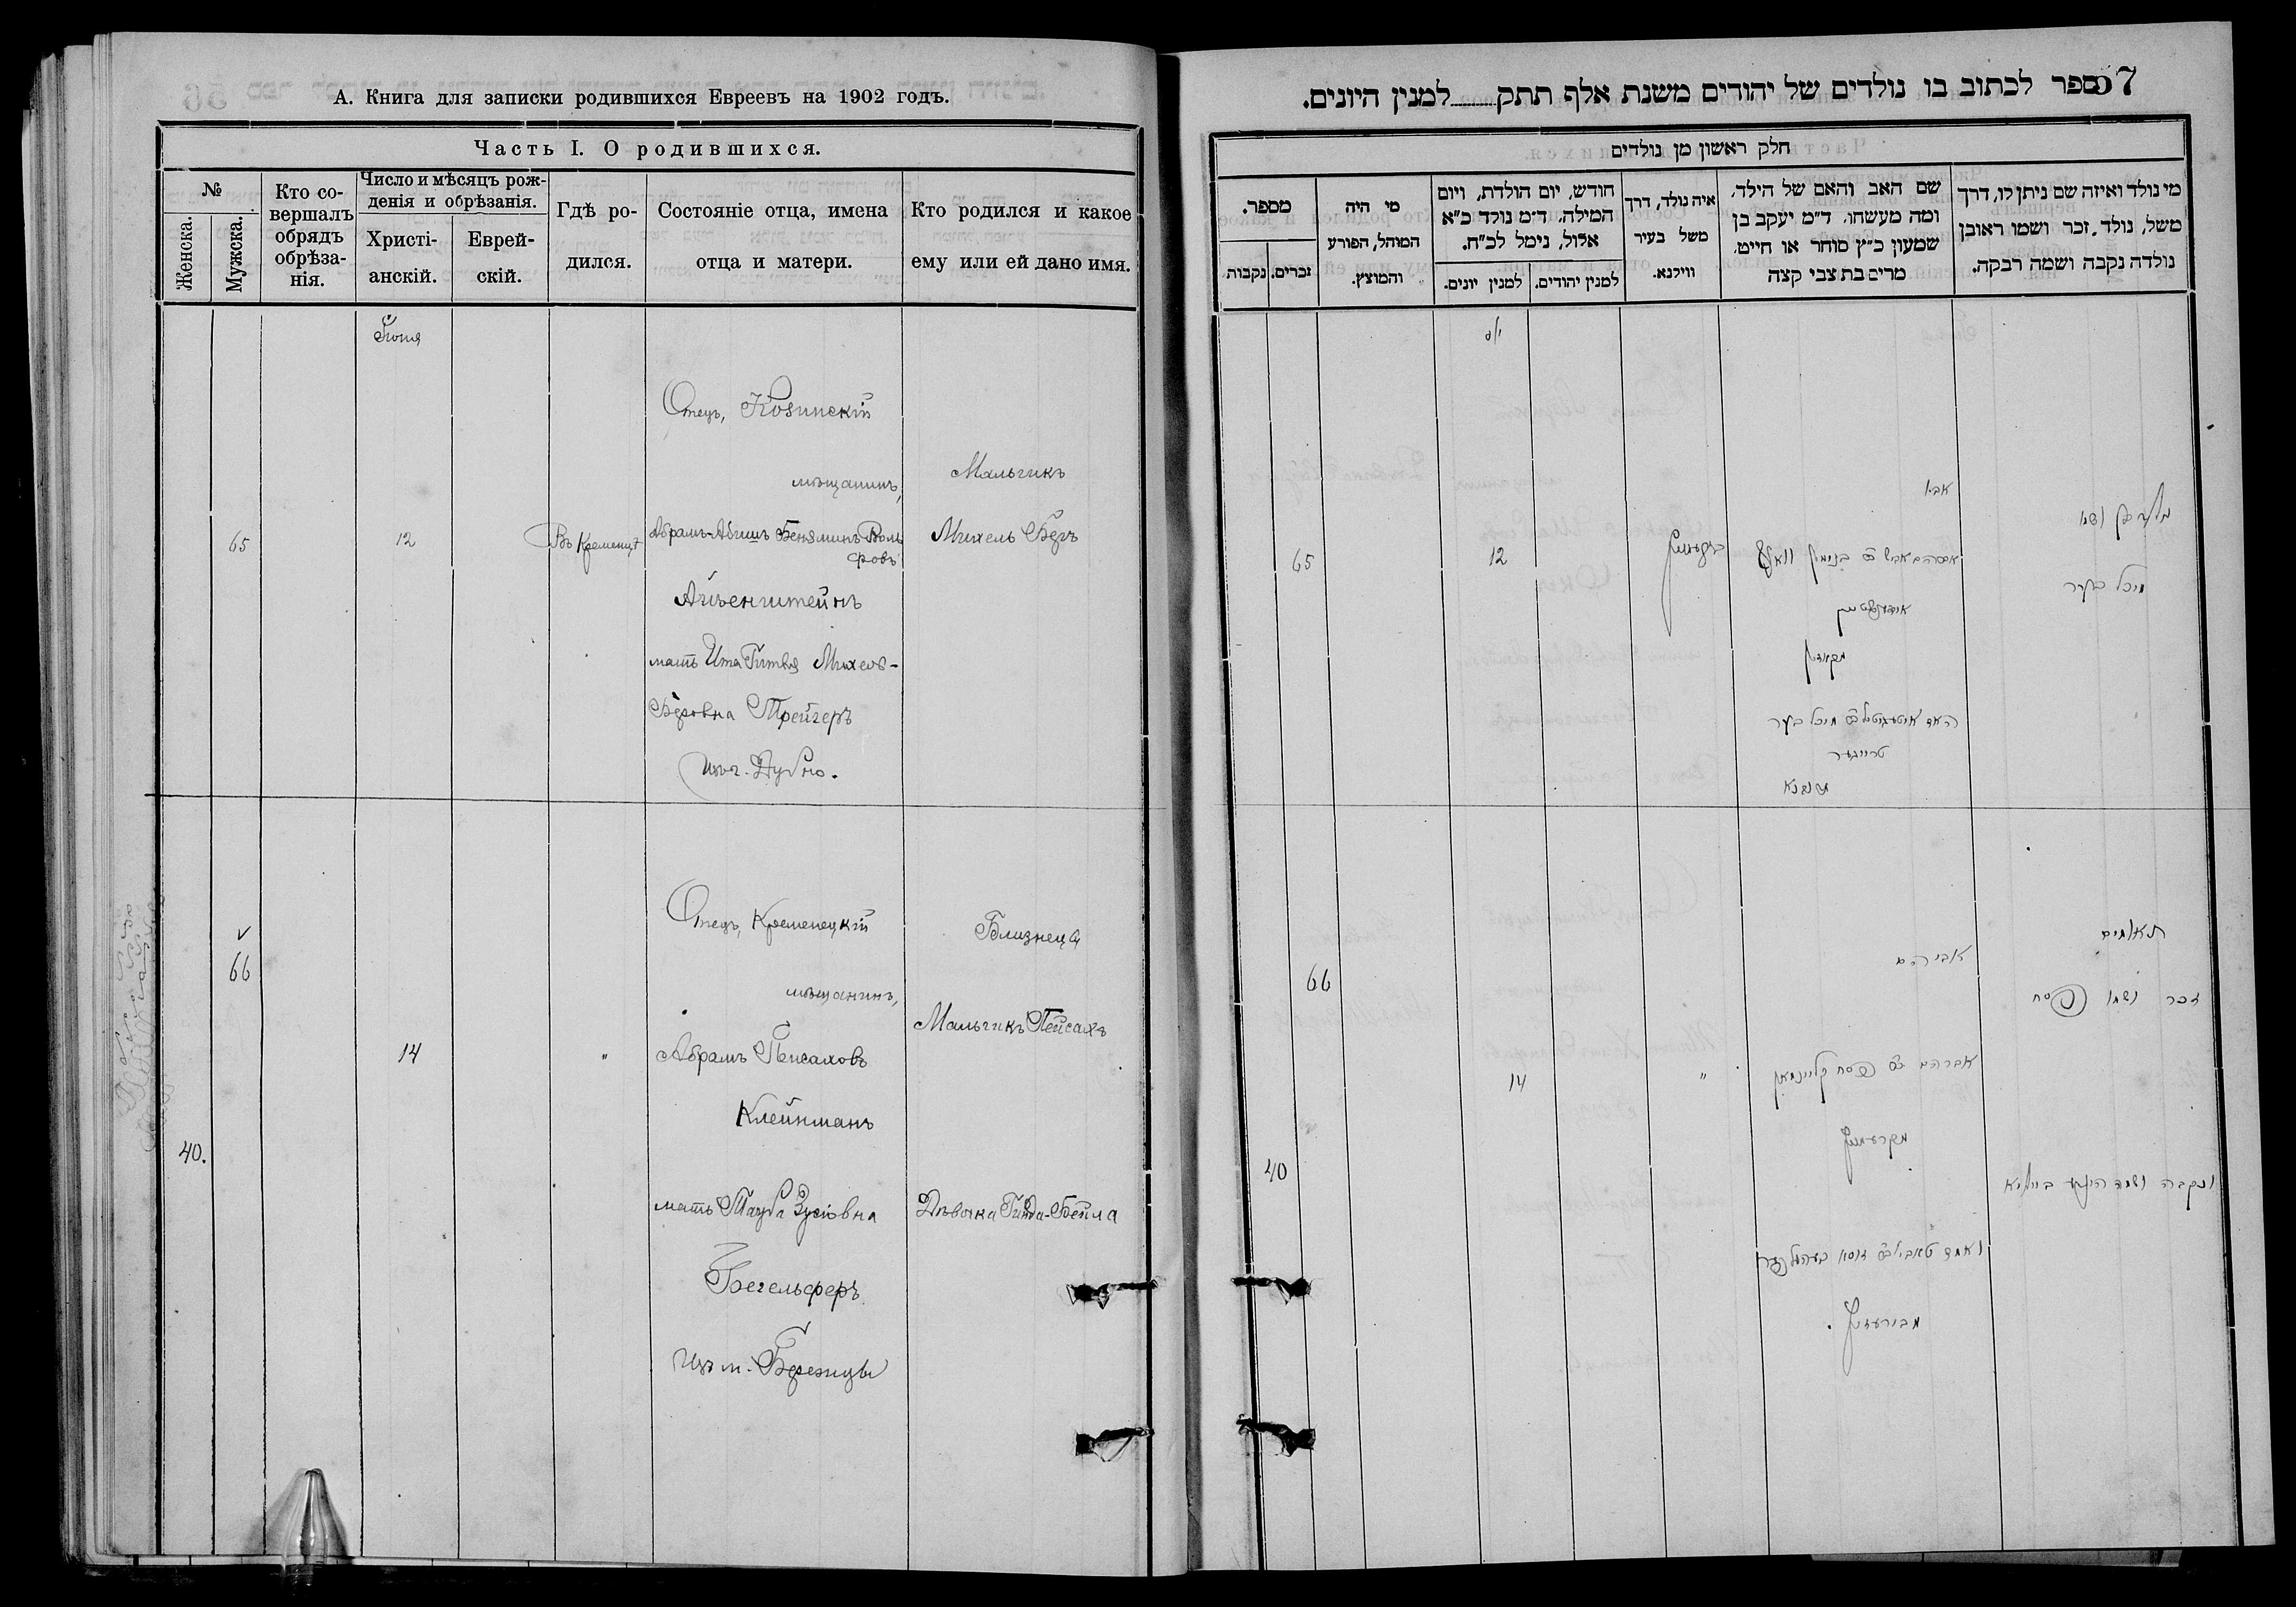 А. Книга для записки родившихся Евреевъ на 1902 годъ.
Часть I. О родившихся.
№
Женска.
Мужска.
Кто совершалъ обрядъ обрѣзанія.
Число и мѣсяцъ рожденія и обрѣзанія.
Христіанскій.
Еврейскій.
Гдѣ родился.
Состояніе отца, имена отца и матери.
Кто родился и какое ему или ей дано имя.
Іюня
65
12
Въ Кременцѣ
Отецъ, Козинскій
мѣщанинъ,
Абрамъ-Абишъ Беняминъ Воль
фовъ
Айзенштейнъ
мать Ита Гитля Михель-
Беровна Трейгеръ
изъ г. Дубно.
Мальчикъ
Михель Беръ
66
40.
14
"
Отецъ, Кременецкій
мѣщанинъ,
Абрамъ Пейсаховъ
Клейнманъ
мать Тауба Зусіовна
Бегельферъ
изъ м. Бережцы
Близнецы
Мальчикъ Пейсахъ
Дѣвочка Гинда-Бейла
57
ספר לכתוב בו נולדים של יהודים משנת אלף תתק למנין היונים.
חלק ראשון מן נולדים
מי נולד ואיזה שם ניתן לו, דרך
משל, נולד זכר ושמו ראובן
נולדה נקבה ושמה רבקה.
שם האב והאם של הילד,
ומה מעשהו. ד״מ יעקב בן
שמעון כ״ץ סוחר או חייט,
מרים בת צבי קצה
איה נולד, דרך
משל בעיר
ווילנא.
חודש, יום הולדת, ויום
המילה, ד״מ נולד כ״א
אלול, נימל לכ״ח.
למנין יהודים.
למנין יונים.
מי היה
המוהל, הפורע
והמוצץ.
מספר.
זכרים.
נקבות
ושמו
מיכל בער
אביו
מיכל בער
טרייגער
מדובנא
12
65
תאומים
זכר ושמו פסח
ונקבה ושמה הינדע ביילא
אביהם
אברהם ב״ר פסח קליינמאן
מקרעמניץ
"
14
66
40